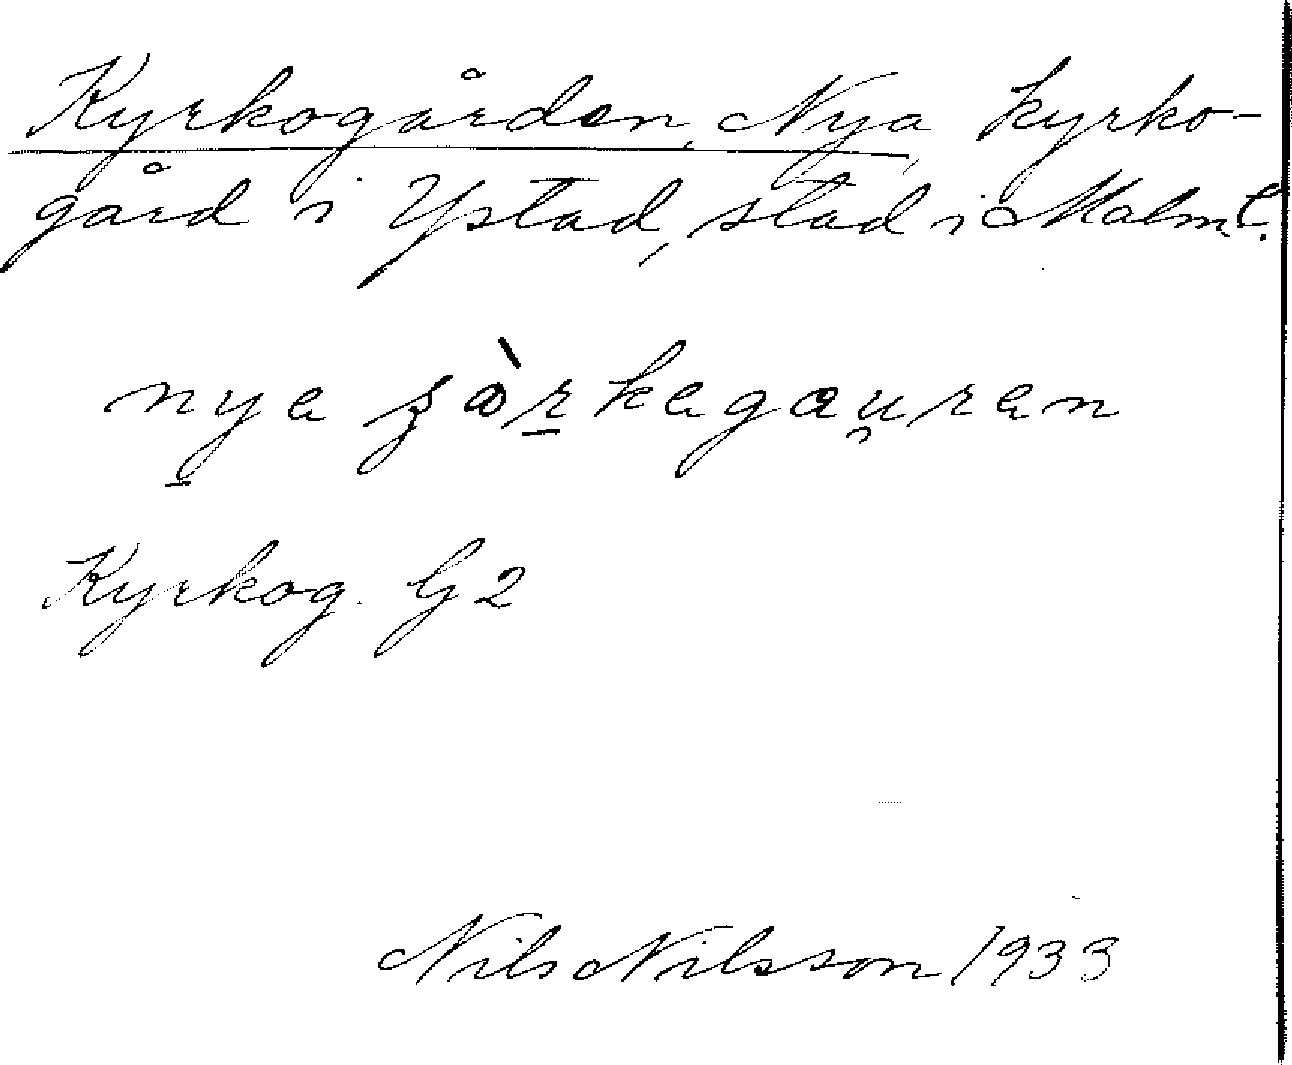 Kyrkogården, Nya, kyrko-
gård i Ystad, stad i Malm.
nya
Kyrkog. G 2
Nils Nilsson 1933